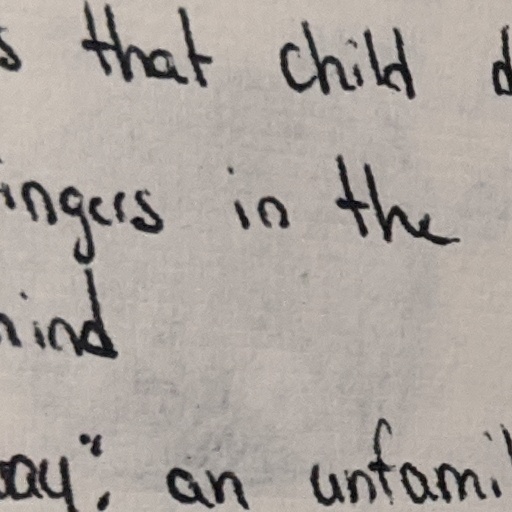 s that child d
ingers in the
ind
ay". an unfamil